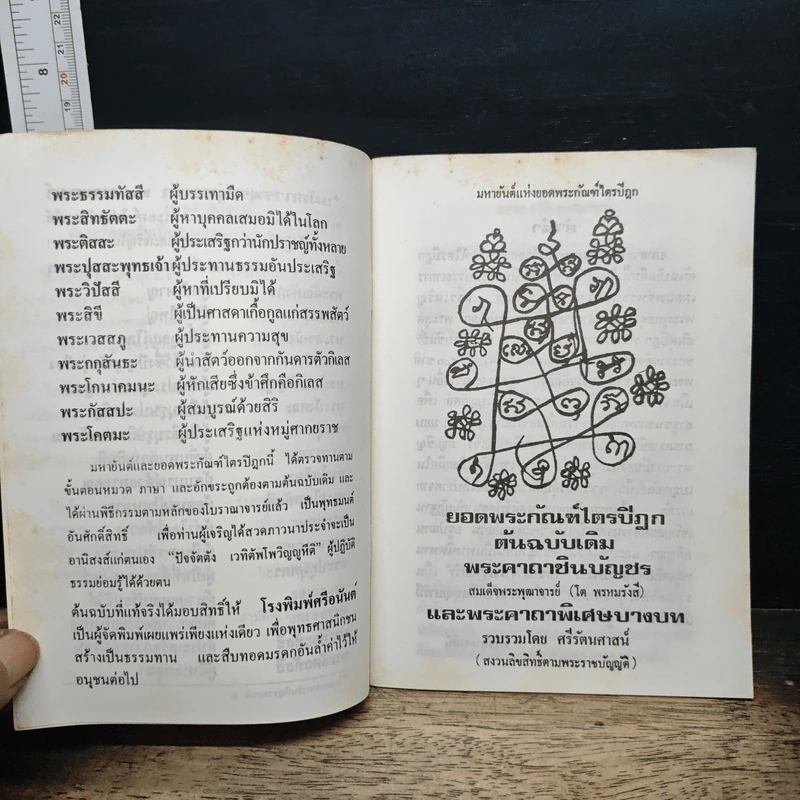 พระธรรมทัสสี ผู้บรรเทามืด
พระสิทธัตตะ ผู้หาบุคคลเสมอมิได้ในโลก
พระติสสะ ผู้ประเสริฐกว่านักปราชญ์ทั้งหลาย
พระปุสสะพุทธเจ้า ผู้ประทานธรรมอันประเสริฐ
พระวิปัสสี ผู้หาที่เปรียบมิได้
พระสิขี ผู้เป็นศาสดาเกื้อกูลแก่สรรพสัตว์
พระเวสสภู ผู้ประทานความสุข
พระกกุสันธะ ผู้นำสัตว์ออกจากกันดารตัวกิเลส
พระโกนาคมนะ ผู้หักเสียซึ่งข้าศึกคือกิเลส
พระกัสสปะ ผู้สมบูรณ์ด้วยสิริ
พระโคตมะ ผู้ประเสริฐแห่งหมู่ศากยราช
มหายันต์และยอดพระกัณฑ์ไตรปิฎกนี้ ได้ตรวจทานตาม
ขั้นตอนหมวด ภาษา และอักขระถูกต้องตามต้นฉบับเดิม และ
ได้ผ่านพิธีกรรมตามหลักของโบราณาจารย์แล้ว เป็นพุทธมนต์
อันศักดิ์สิทธิ์ เพื่อท่านผู้เจริญได้สวดภาวนาประจำจะเป็น
อานิสงส์แก่ตนเอง "ปัจจัตตัง เวทิตัพโพวิญญูหีติ" ผู้ปฏิบัติ
ธรรมย่อมรู้ได้ด้วยตน
ต้นฉบับที่แท้จริงได้มอบสิทธิ์ให้ โรงพิมพ์ศรีอนันต์
เป็นผู้จัดพิมพ์เผยแพร่เพียงแห่งเดียว เพื่อพุทธศาสนิกชน
สร้างเป็นธรรมทาน และสืบทอดมรดกอันล้ำค่าไว้ให้
อนุชนต่อไป
มหายันต์แห่งยอดพระกัณฑ์ไตรปิฎก
ยอดพระกัณฑ์ไตรปิฎก
ต้นฉบับเดิม
พระคาถาชินบัญชร
สมเด็จพระพุฒาจารย์ (โต พรหมรังสี)
และพระคาถาพิเศษบางบท
รวบรวมโดย ศรีรัตนศาสน์
(สงวนลิขสิทธิ์ตามพระราชบัญญัติ)
8
22
21
20
19